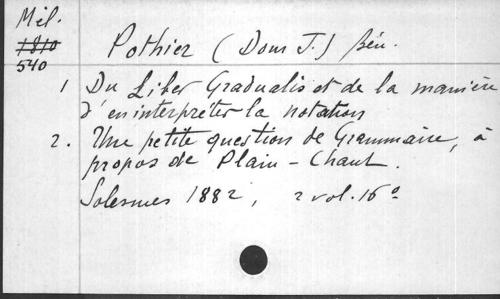 Mél.
1810
540
Pothier (Dom J.) bén.
1 Du Liber Gradualis et de la manière
d'en interpréter la notation
2. Une petite question de Grammaire, à
propos de Plain-Chant.
Solesmes 1882, 2 vol. 16º